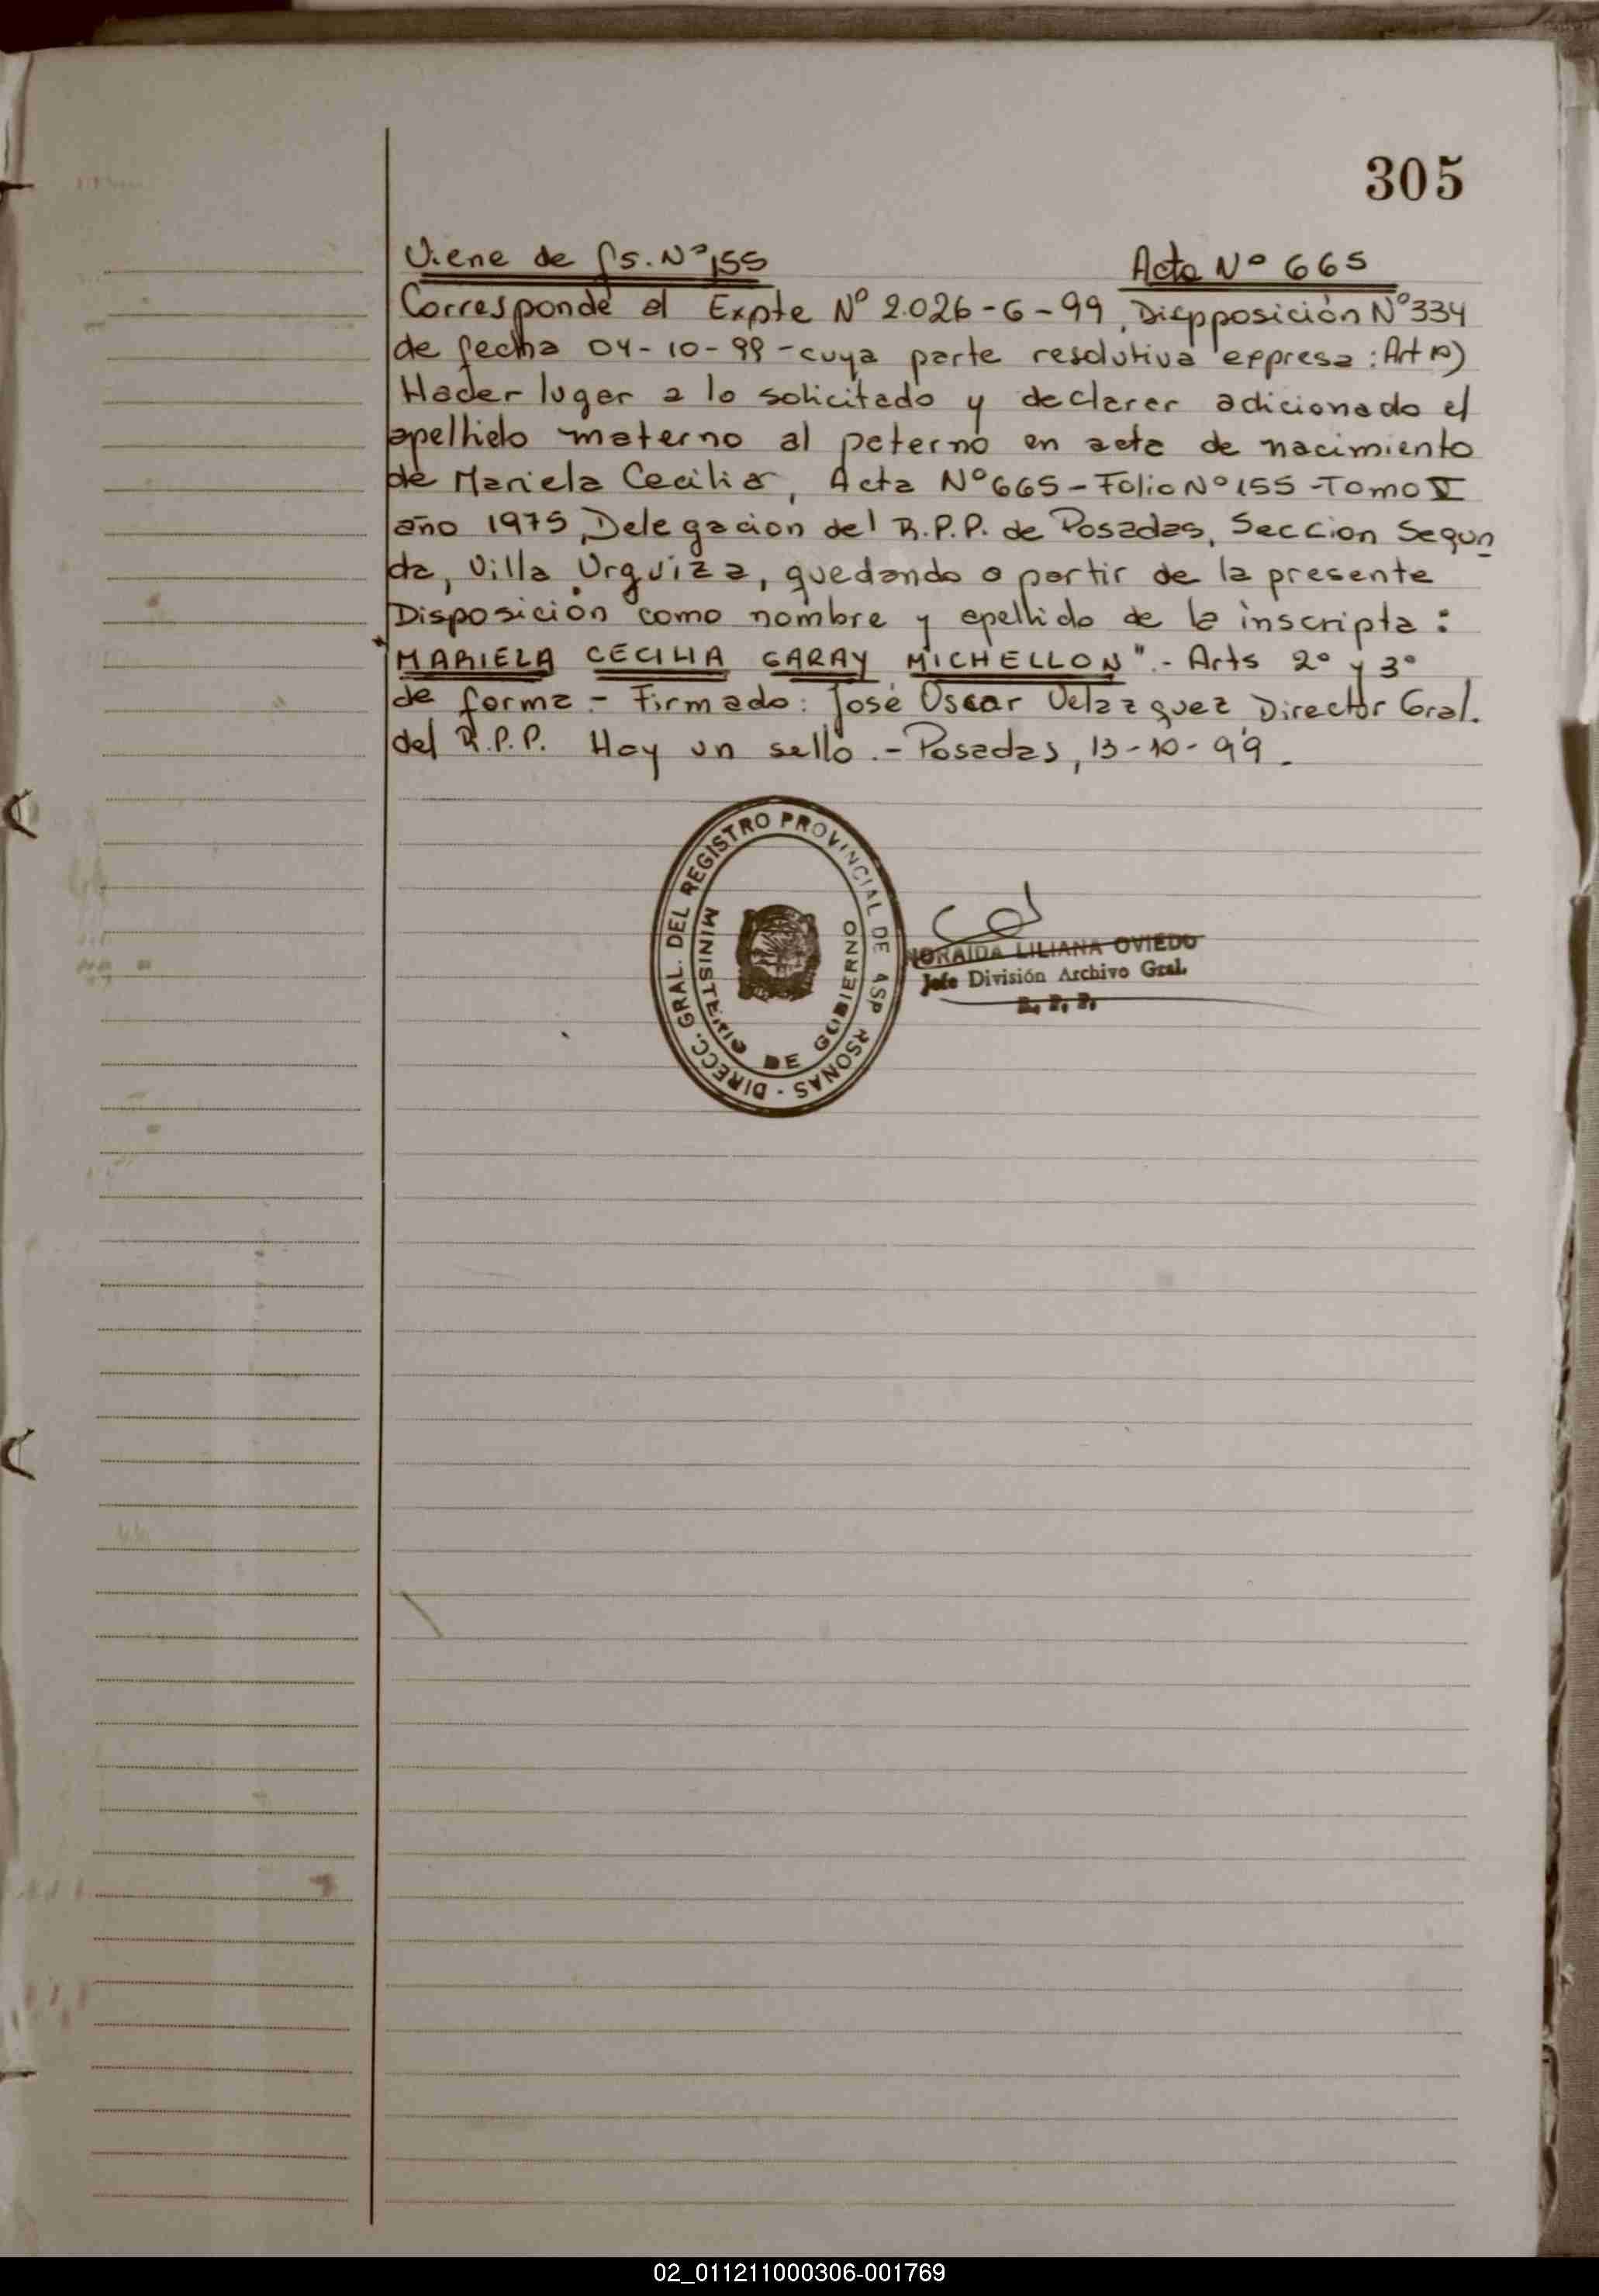 305
Viene de fs. Nº 155 Acta Nº 665
Corresponde al Expte Nº 2.026-G-99, Dispposición Nº 334
de fecha 04-10-99 - cuya parte resolutiva expresa: Art 1º)
Hacer lugar a lo solicitado y declarar adicionado el
apellido materno al paterno en acta de nacimiento
de Mariela Cecilia, Acta Nº 665 - Folio Nº 155 - Tomo V
año 1975, Delegacion del R.P.P. de Posadas, Seccion Segun
da, Villa Urquiza, quedando a partir de la presente
Disposición como nombre y apellido de la inscripta:
"MARIELA CECILIA GARAY MICHELLON". - Arts 2º y 3º
de forma. - Firmado: José Oscar Velazquez Director Gral.
del R.P.P. Hay un sello. - Posadas, 13-10-99.
DIRECC. GRAL. DEL REGISTRO PROVINCIAL DE PERSONAS
MINISTERIO DE GOBIERNO
NORAIDA LILIANA OVIEDO
Jefe División Archivo Gral.
R. P. P.
02_011211000306-001769